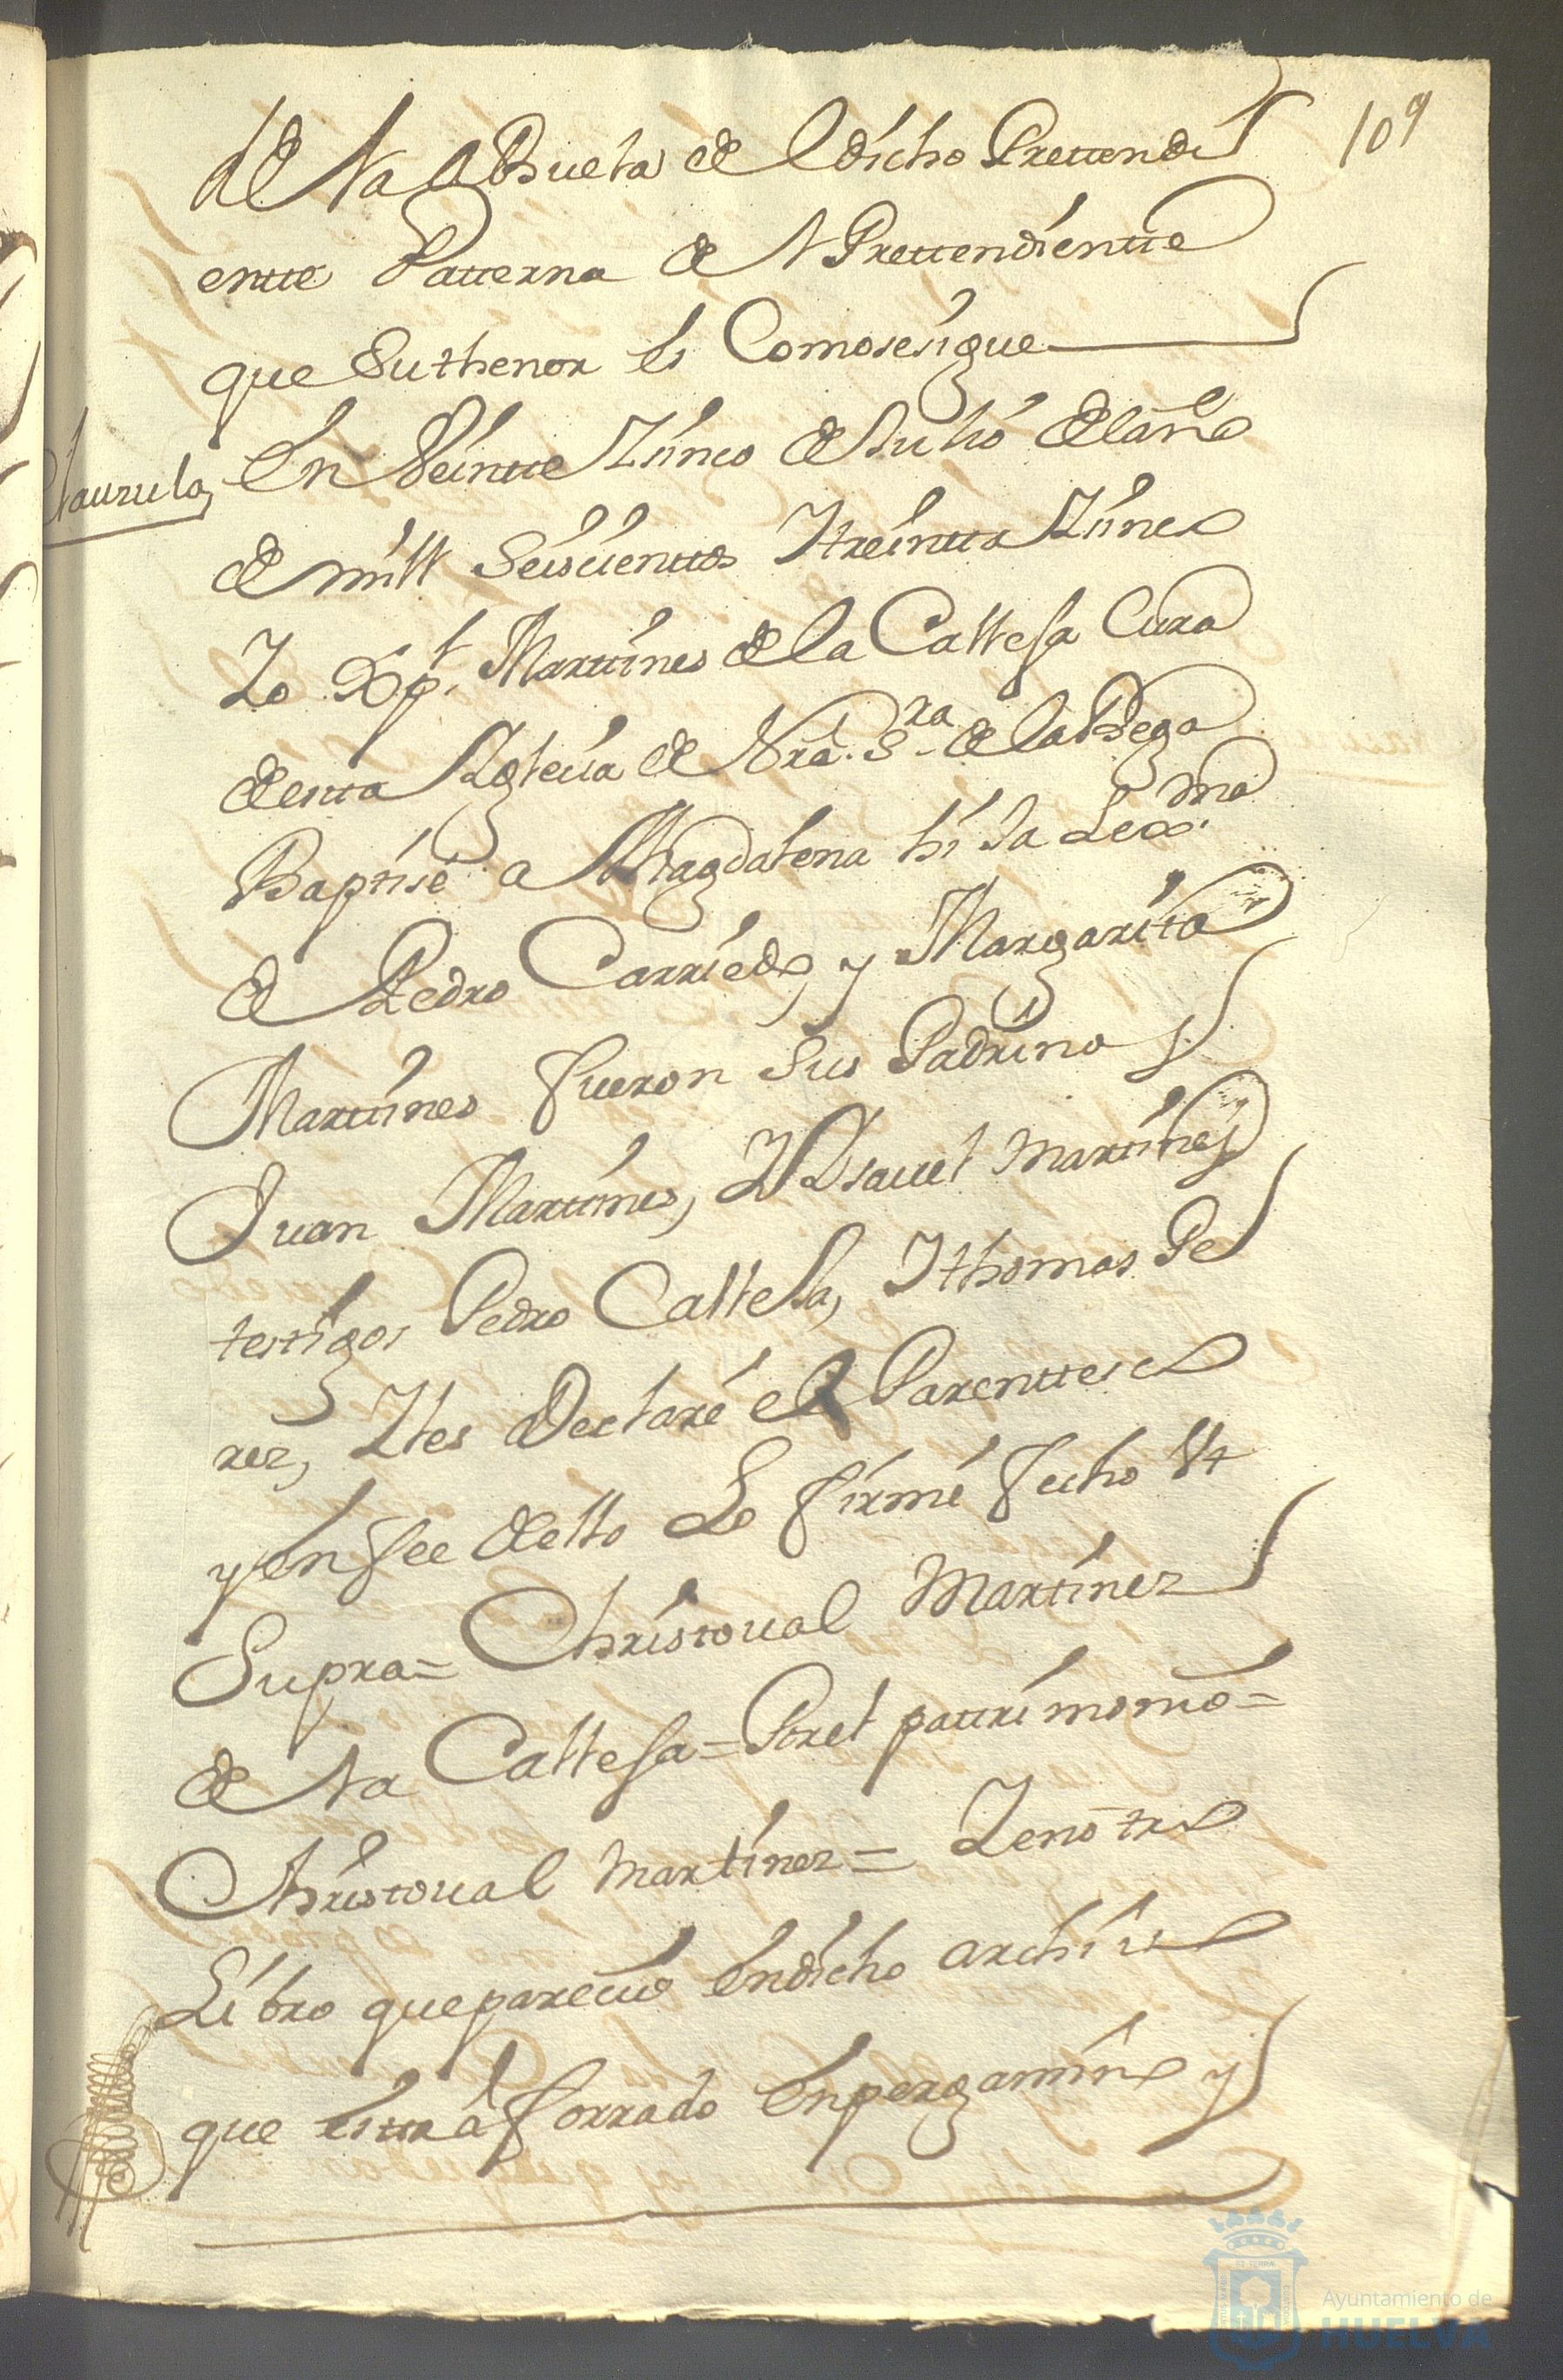 109
de la Abuela de el dicho Prettendi
entte Patterna de el Prettendientte
que Suthenor es Comosesigue
Clausula
En Veintte Zinco de Julio del año
de mill Seiscienttos Ytreintta Zinco
Yo Xpl. Marttines de la Callesa Cura
de estta Yglecia de Nra. Sra de la Vega
Baptisé a Magdalena hija Lexma
de Pedro Carriedo, y Margarita
Marttines fueron Sus Padrinos
Juan Marttines, Y Ysauel Martines
testigos Pedro Callesa, Ythomas Pe
rez, Yles Declaré el Parenttesco
y en fee dello Lo firmé fecho Vt
Supra = Christoual Martinez
de la Callesa = Porel pattrimonio =
Christoual Martinez = Yenotro
Libro queparecio Endicho archivo
que estta aforrado Enpergamino y
Ayuntamiento de
HUELVA